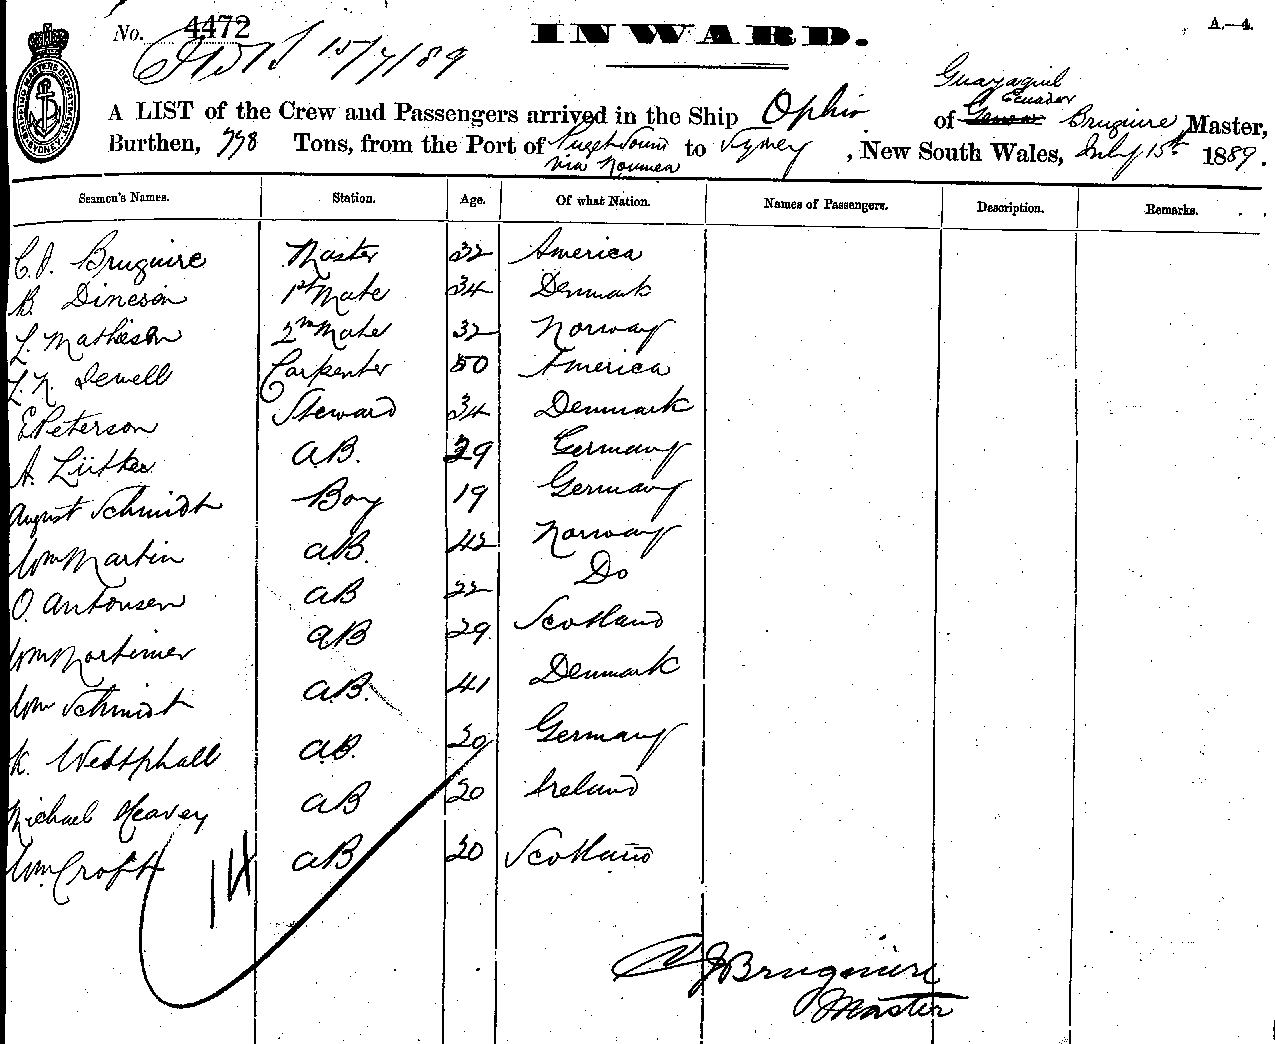 No. 4472
INWARD.
A.—4.
15/7/89
Guayaquil
Ecuador
A LIST of the Crew and Passengers arrived in the Ship Ophir of Bruguiere Master,
Burthen, 778 Tons, from the Port of Puget Sound to Sydney, New South Wales, July 15th 1889.
via Noumea
Seamen's Names. Station. Age. Of what Nation. Names of Passengers. Description. Remarks.
C.J. Bruguire Master 32 America
B. Dineson 1st Mate 34 Denmark
L. Matheson 2nd Mate 32 Norway
L.N. Dewell Carpenter 50 America
E Peterson Steward 34 Denmark
A. Lütke AB. 29 Germany
August Schmidt Boy 19 Germany
Wm Martin AB. 42 Norway
O. Antonsen AB 22 Do
Wm Mortimer AB 29 Scotland
Wm Schmidt AB. 41 Denmark
K. Westphall AB. 20 Germany
Michael Heavey AB 20 Ireland
Wm. Croft AB 20 Scotland
14
CJ Bruguiere
Master